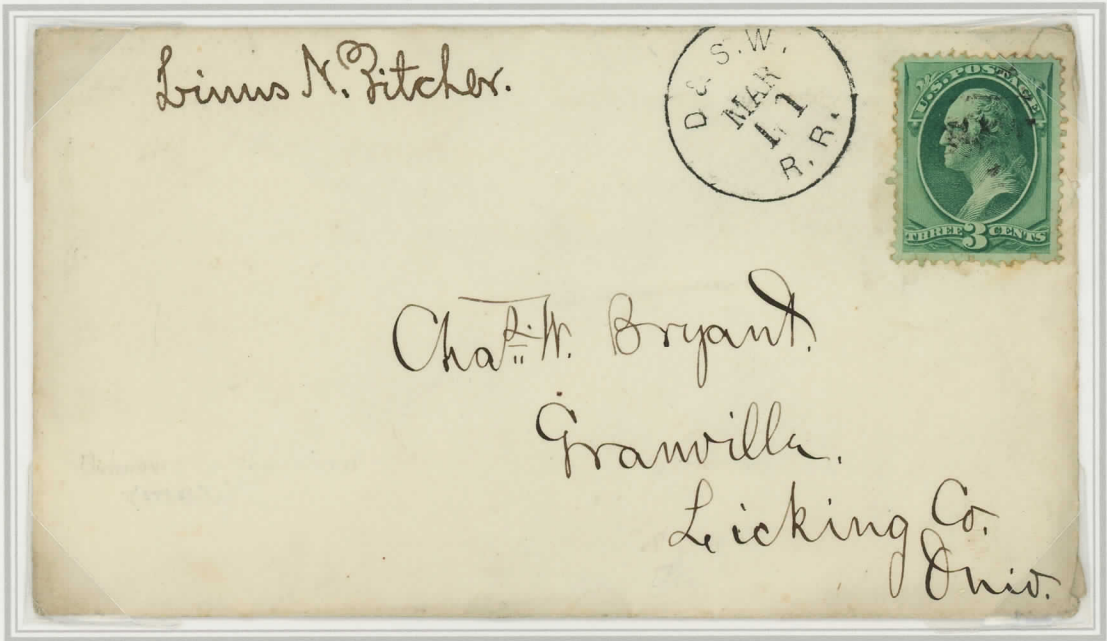 Linus N. Pitcher.
D & S.W.
MAR
11
R.R.
U.S. POSTAGE
THREE 3 CENTS
Chas. W. Bryant.
Granville.
Licking Co.
Ohio.